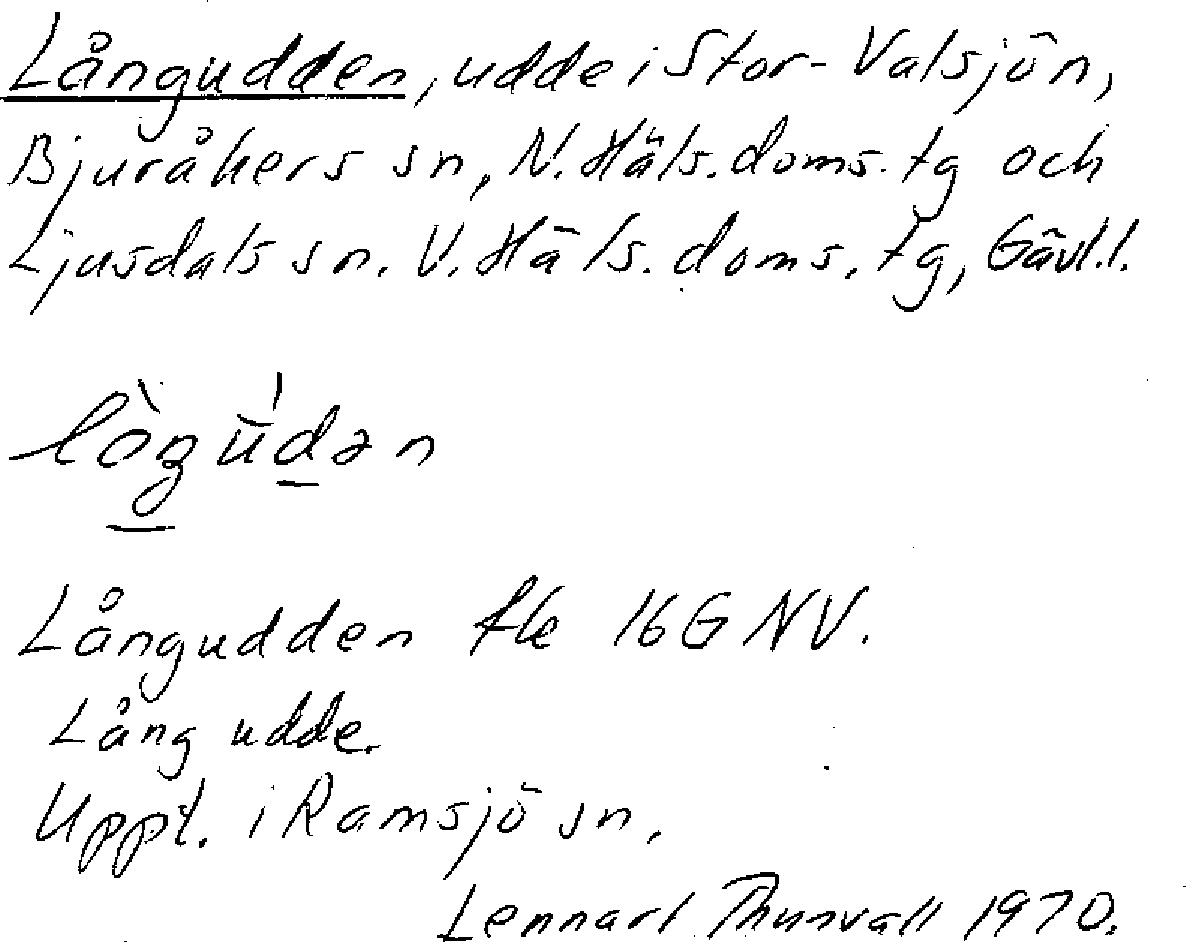 Långudden, udde i Stor-Valsjön,
Bjuråkers sn, N. Häls. doms. tg och
Ljusdals sn. V. Häls. doms. tg, Gävl.l.
Långudden fle 16G NV.
Lång udde.
Uppt. i Ramsjö sn.
Lennart Thunvall 1970.